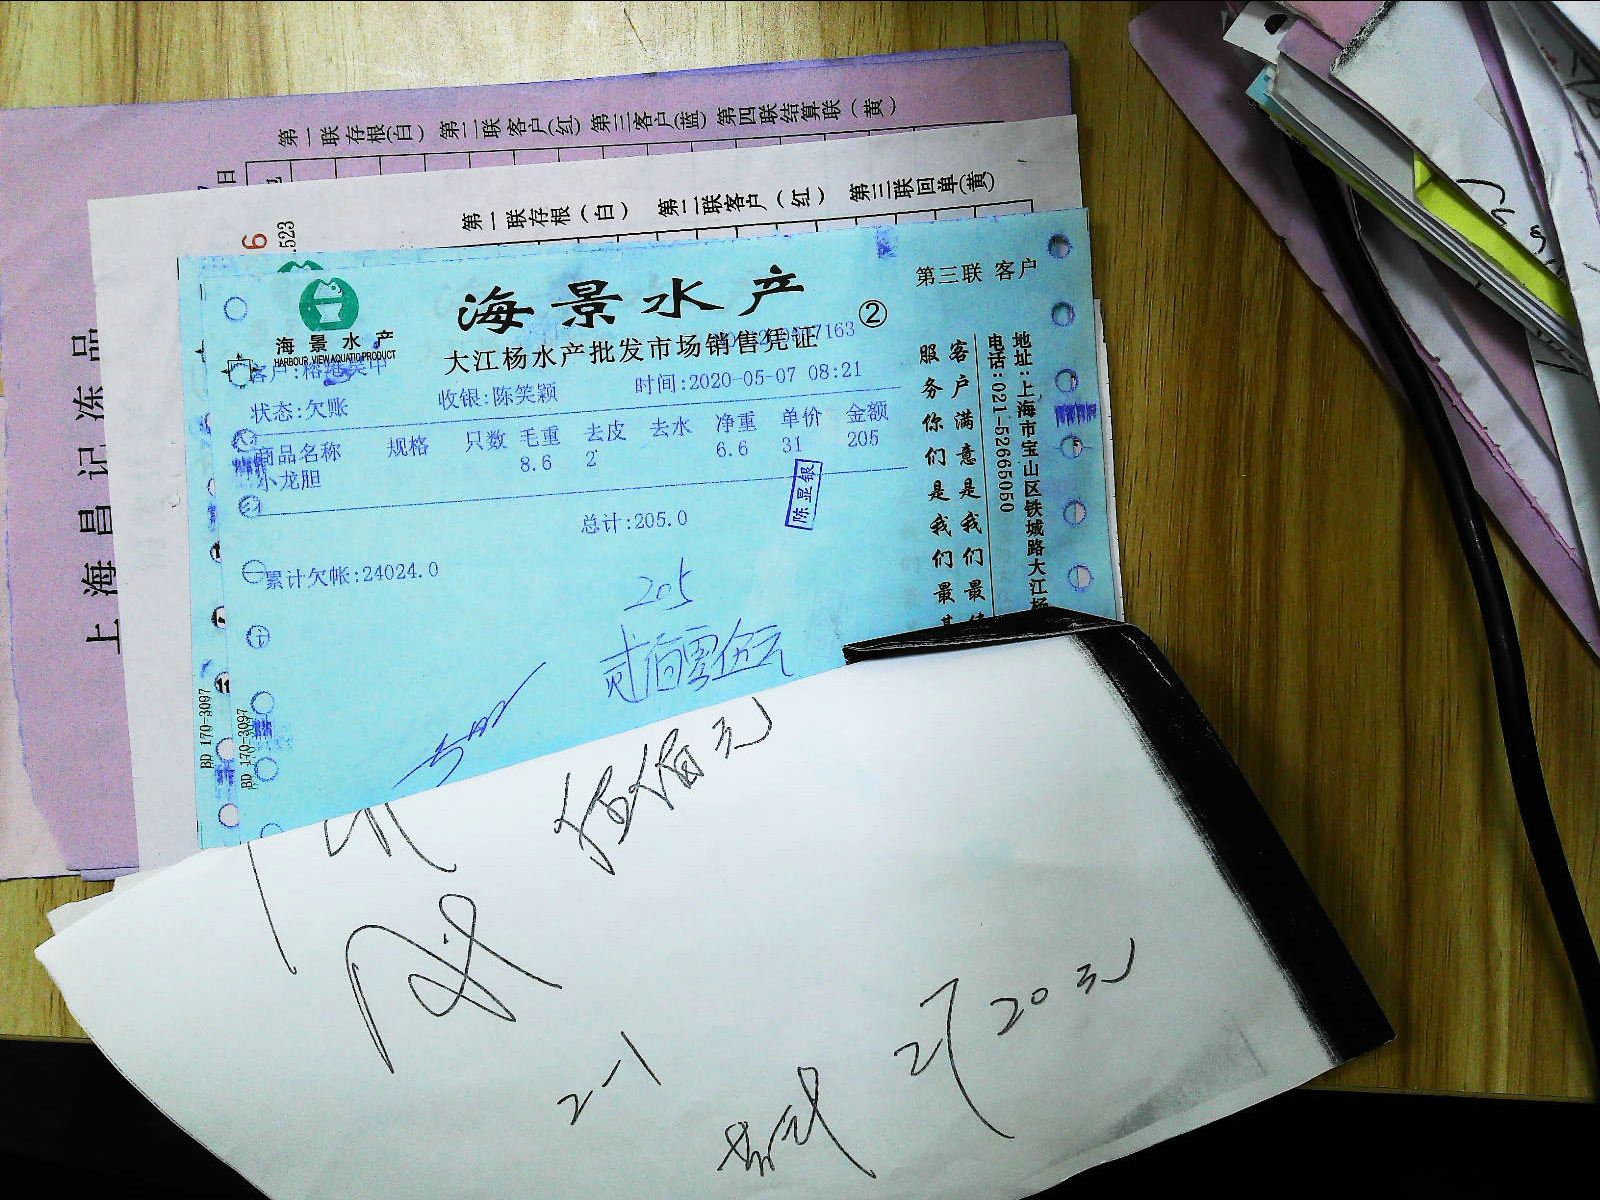 第一联存根(白) 第二联客户(红) 第三客户(蓝) 第四联结算联(黄)
日
第一联存根(白) 第二联客户(红) 第三联回单(黄)
6
.523
上海昌记冻品
海景水产
HARBOUR VIEW AQUATIC PRODUCT
海景水产
②
第三联 客户
大江杨水产批发市场销售凭证
7163
客户:
状态:欠账
收银:陈笑颖
时间:2020-05-07 08:21
商品名称 规格 只数 毛重 去皮 去水 净重 单价 金额
小龙胆 8.6 2 6.6 31 205
陈显银
总计:205.0
累计欠帐:24024.0
客户满意是我们最
服务你们是我们最
地址:上海市宝山区铁城路大江杨
电话:021-52665050
205
贰佰零伍元
BD 170-3097
BD 170-3097
伍佰元
2-1
20元